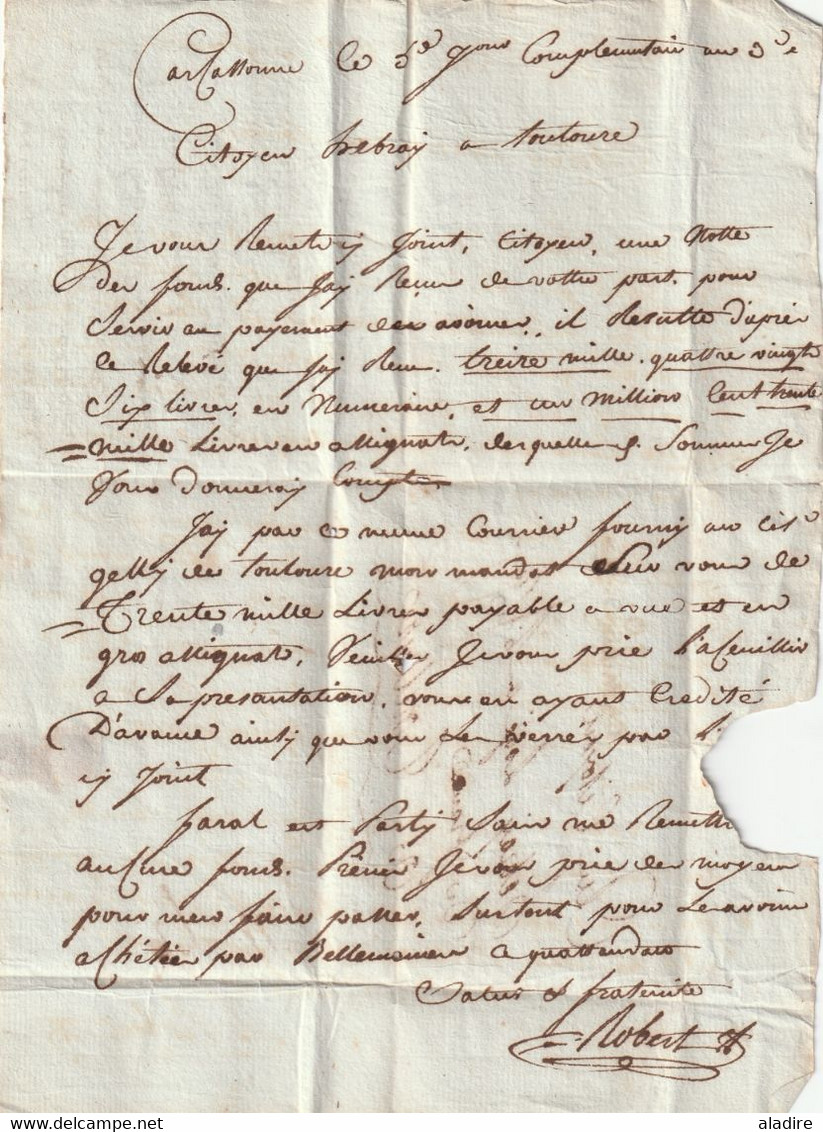 Carcassonne le 5e jour Complementair an 3e
Citoyen debray a toulouse
Je vous Remet cy Joint, Citoyen, une Notte
des fonds que Jay Reçeu de votre part pour
Servir au payement des avoines, il Resulte d'apres
le Relevé que Jay Reçeu treize mille quattre vingts
Six livres, en Numeraire, et un million Cent trente
mille Livres en assignats, desquelles Sommes Je
Vous donneray Compte.
Jay par ce meme Courrier fourny au cit.
de toulouse mon mandat Sur vous de
Trente mille Livres payable a vue et en
gros assignats, Veuillez Je vous prie l'aCeuillir
a Sa presantation, vous en ayant Credité
D'avance ainsy que vous Le verrés par
cy Joint
faral est Party Sans me Remettre
auCune fonds. Je vous prie des moyens
pour men faire passer, Surtout pour Les avoines
achétées par a
Salut & fraternité
Robert
aladire